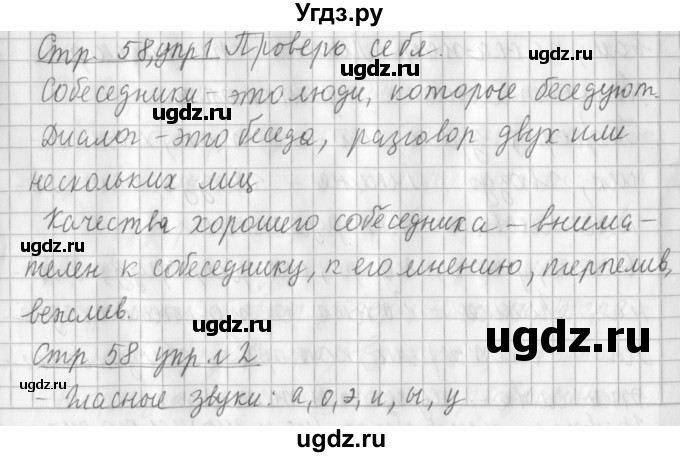 Угдз.ру
Стр. 58, упр 1 Проверь себя.
Собеседники – это люди, которые беседуют.
ugdz.ru ugdz.ru
Диалог – это беседа, разговор двух или
нескольких лиц
ugdz.ru ugdz.ru
Качества хорошего собеседника – внима-
ugdz.ru
телен к собеседнику, к его мнению, терпелив,
вежлив.
ugdz.ru ugdz.ru
Стр 58 упр. 2
- Гласные звуки: а, о, э, и, ы, у
ugdz.ru ugdz.ru
ugdz.ru